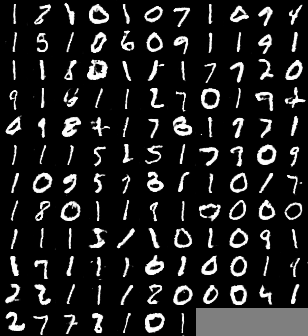 1 8 1 0 1 0 7 1 0 9 4
1 5 1 8 6 0 9 1 1 9 1
1 1 8 0 1 5 1 7 9 2 0
9 1 6 1 1 2 7 0 1 9 7
0 9 8 7 1 7 8 1 9 7 1
1 1 1 5 2 5 1 7 9 0 9
1 0 9 5 9 8 1 1 0 1 7
1 8 0 1 1 9 1 0 0 0 0
1 1 1 5 1 1 0 1 0 9 1
1 7 1 1 1 6 1 0 0 1 9
2 2 1 1 1 2 0 0 0 4 1
2 7 7 8 1 0 1